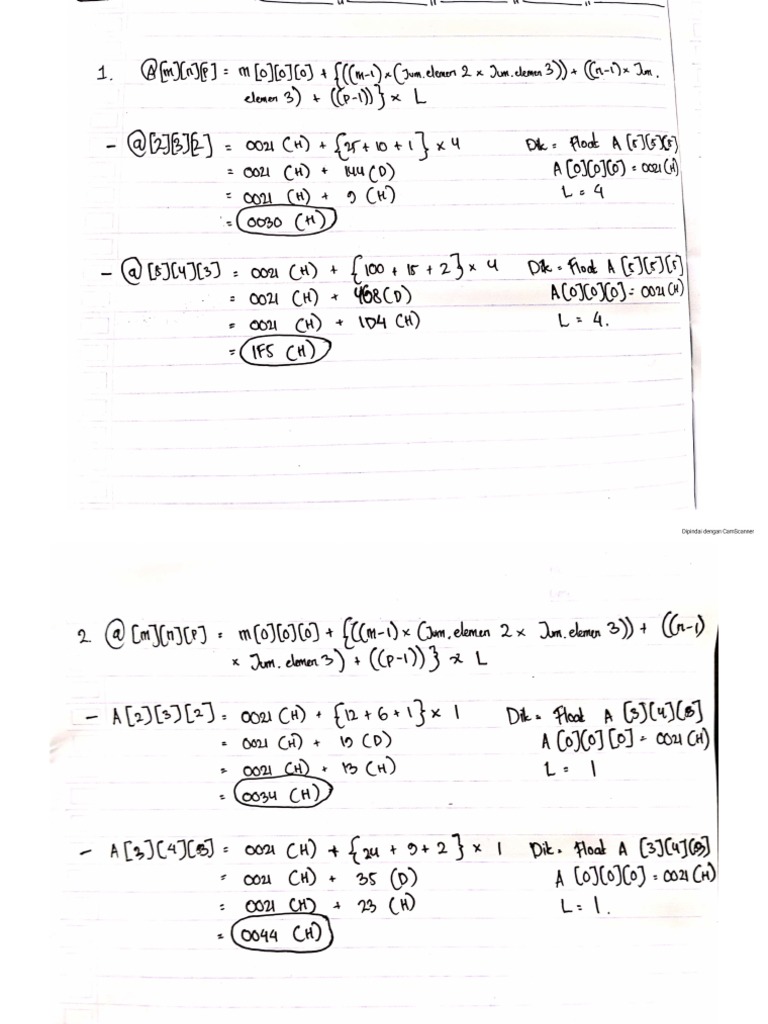 1. @[m][n][p] = m[0][0][0] + {((m-1)×(Jum.elemen 2 × Jum.elemen 3)) + ((n-1)× Jum.
elemen 3) + ((p-1))} × L
- @[2][3][2] = 0021 (H) + {25+10+1} × 4 Dik = Float A [5][5][5]
= 0021 (H) + 144 (D) A [0][0][0] = 0021 (H)
= 0021 (H) + 9 (H) L = 4
= 0030 (H)
- @ [5][4][3] = 0021 (H) + {100 + 15 + 2} × 4 Dik = Float A [5][5][5]
= 0021 (H) + 468 (D) A[0][0][0] = 0021 (H)
= 0021 (H) + 1D4 (H) L = 4.
= 1F5 (H)
Dipindai dengan CamScanner
2. @ [m][n][p] = m[0][0][0] + {((m-1) × (Jum.elemen 2 × Jum.elemen 3)) + ((n-1)
× Jum.elemen 3) + ((p-1))} × L
- A[2][3][2] = 0021 (H) + {12+6+1} × 1 Dik = Float A [3][4][3]
= 0021 (H) + 19 (D) A [0][0][0] = 0021 (H)
= 0021 (H) + 13 (H) L = 1
= 0034 (H)
- A[3][4][3] = 0021 (H) + {24 + 9 + 2} × 1 Dik = Float A [3][4][3]
= 0021 (H) + 35 (D) A [0][0][0] = 0021 (H)
= 0021 (H) + 23 (H) L = 1.
= 0044 (H)